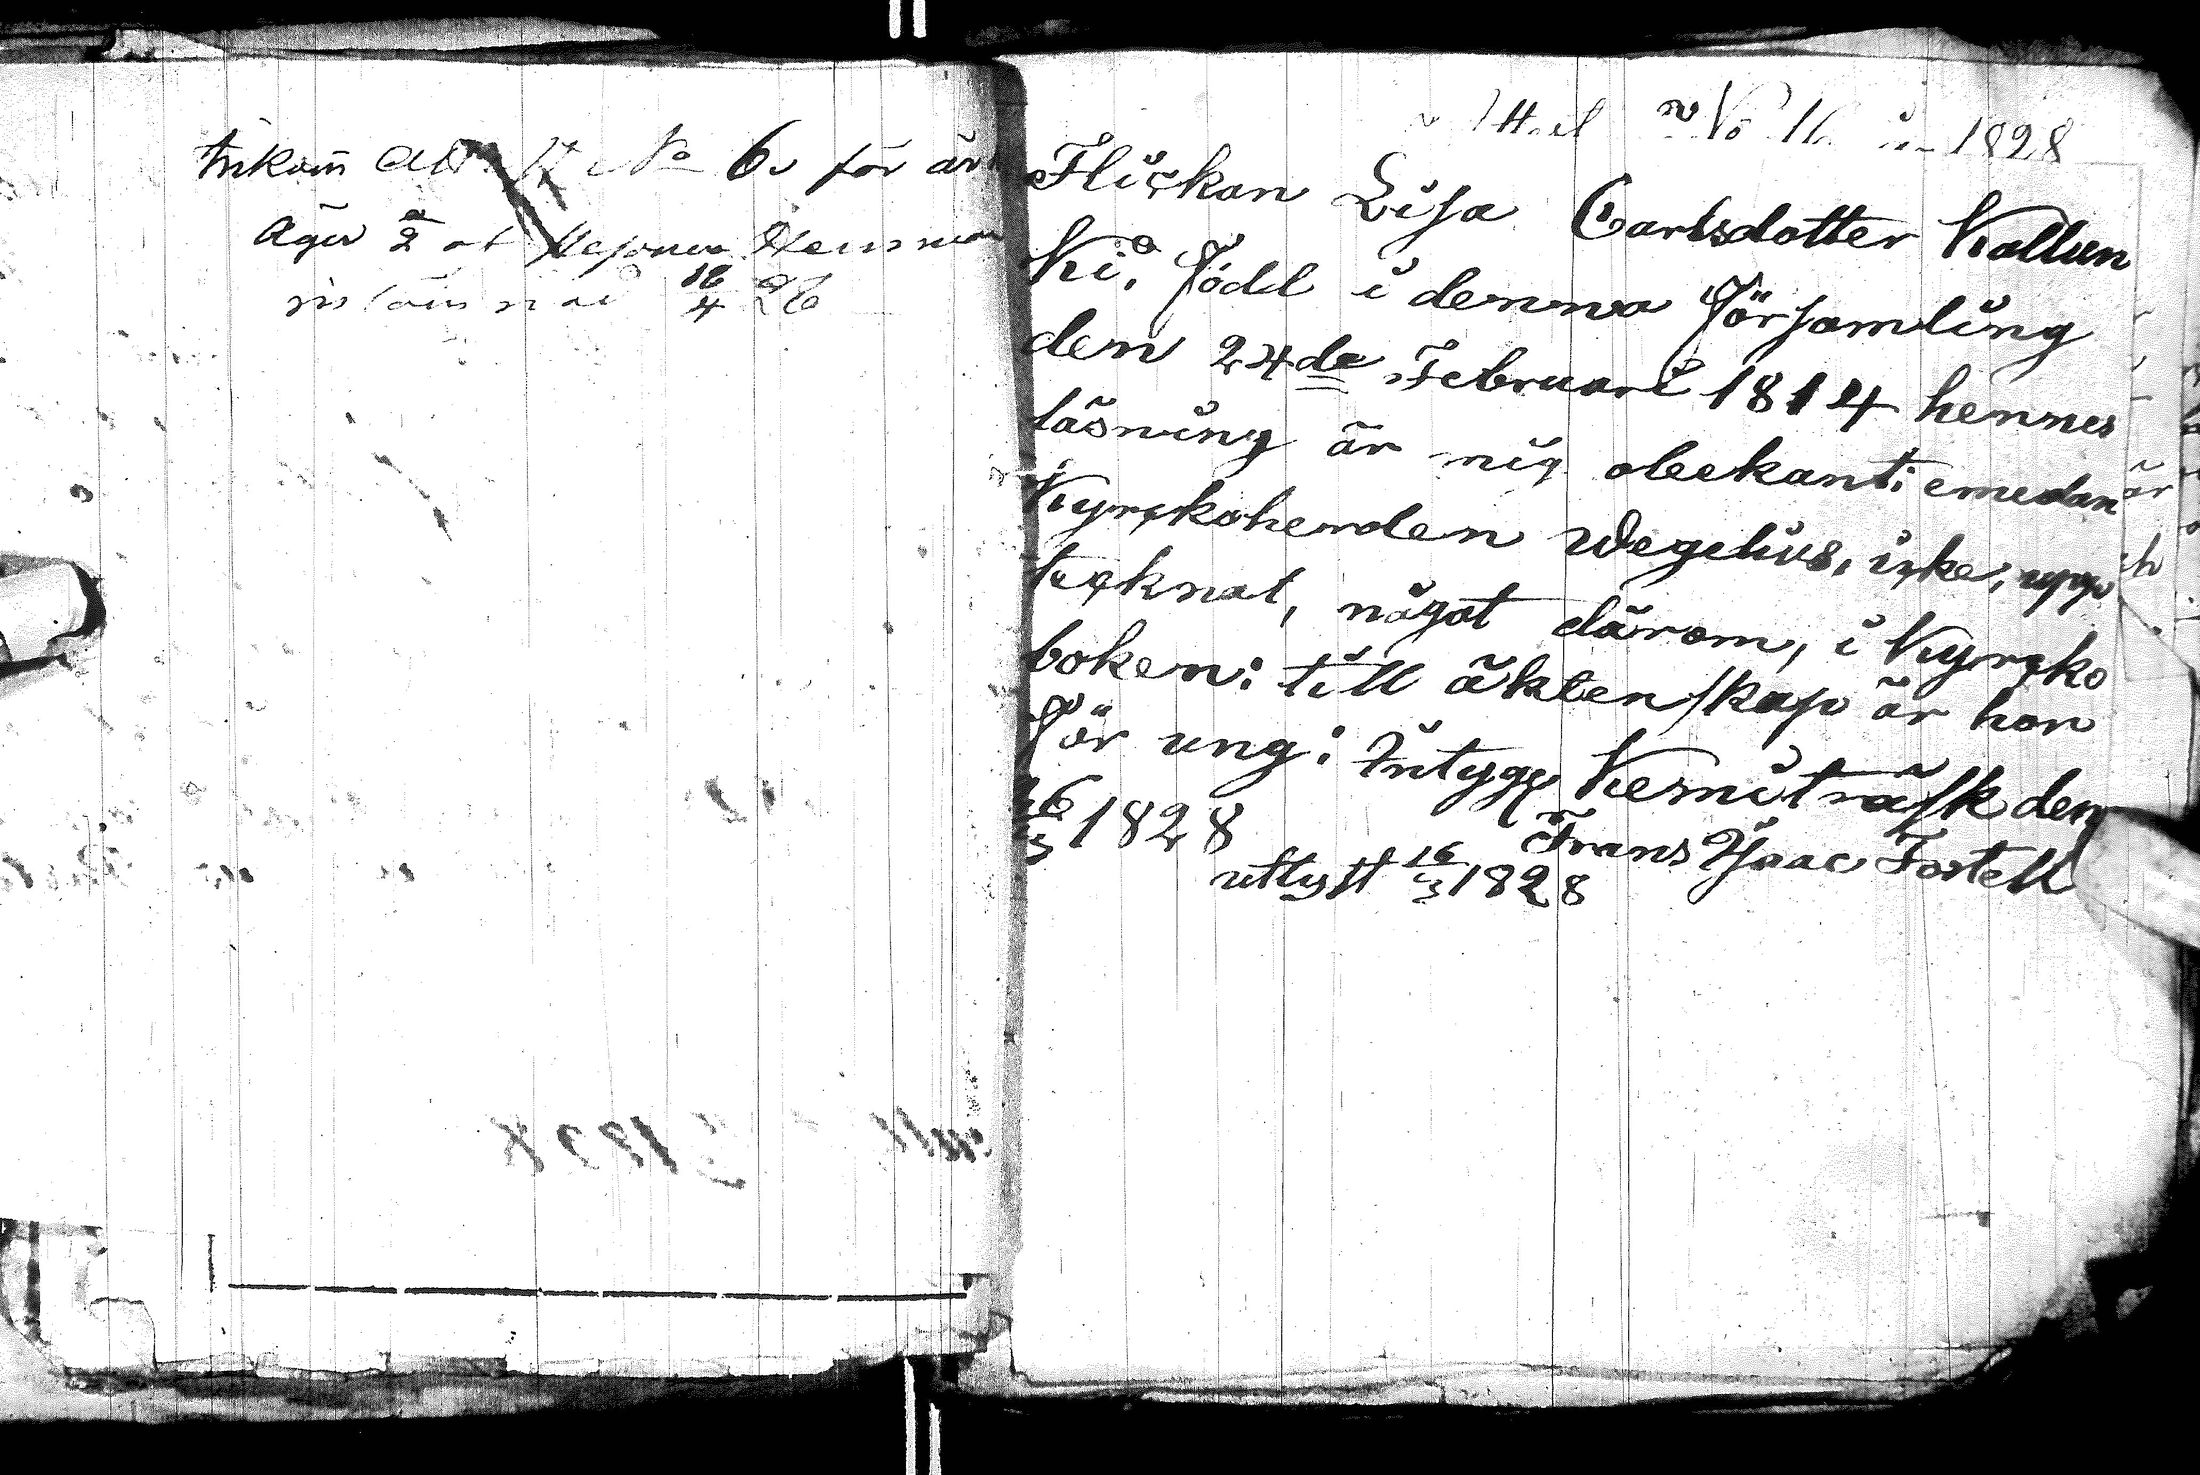 Inkom No 6 för
Äger
16/4 28
No 16 1828
Flickan Lisa Carlsdotter Kallun
ki, född i denna församling
den 24de Februari 1814 hennes
läsning är mig obekant: emedan
Kyrckoherden Wegelius, icke, upp
tecknat, något därom, i Kyrcko
boken: till äktenskap är hon
för ung: Intyge Kemiträsk den
16/3 1828
Frans Isaac Fostell
uttyst 16/3 1828